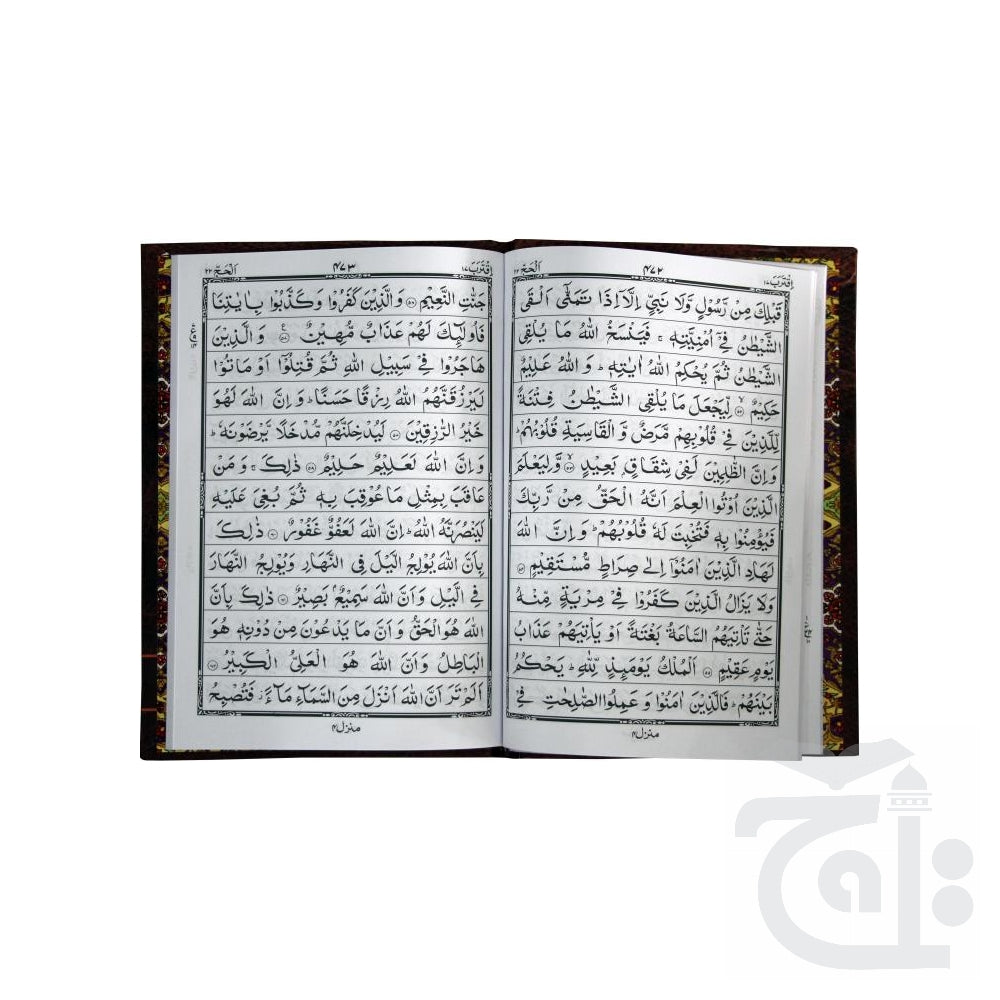 اقترب ١٧
٤٧٢
الحج ٢٢
قَبْلِكَ مِنْ رَّسُوْلٍ وَّلَا نَبِيٍّ اِلَّاۤ اِذَا تَمَنّٰۤى اَلْقَى
الشَّيْطٰنُ فِيْۤ اُمْنِيَّتِهٖ ۚ فَيَنْسَخُ اللّٰهُ مَا يُلْقِي
الشَّيْطٰنُ ثُمَّ يُحْكِمُ اللّٰهُ اٰيٰتِهٖ ؕ وَ اللّٰهُ عَلِيْمٌ
حَكِيْمٌ ۙ ﴿۵۲﴾ لِّيَجْعَلَ مَا يُلْقِي الشَّيْطٰنُ فِتْنَةً
لِّلَّذِيْنَ فِيْ قُلُوْبِهِمْ مَّرَضٌ وَّ الْقَاسِيَةِ قُلُوْبُهُمْ ؕ
وَ اِنَّ الظّٰلِمِيْنَ لَفِيْ شِقَاقٍۭ بَعِيْدٍ ۙ ﴿۵۳﴾ وَّ لِيَعْلَمَ
الَّذِيْنَ اُوْتُوا الْعِلْمَ اَنَّهُ الْحَقُّ مِنْ رَّبِّكَ
فَيُؤْمِنُوْا بِهٖ فَتُخْبِتَ لَهٗ قُلُوْبُهُمْ ؕ وَ اِنَّ اللّٰهَ
لَهَادِ الَّذِيْنَ اٰمَنُوْۤا اِلٰى صِرَاطٍ مُّسْتَقِيْمٍ ﴿۵۴﴾
وَ لَا يَزَالُ الَّذِيْنَ كَفَرُوْا فِيْ مِرْيَةٍ مِّنْهُ
حَتّٰى تَاْتِيَهُمُ السَّاعَةُ بَغْتَةً اَوْ يَاْتِيَهُمْ عَذَابُ
يَوْمٍ عَقِيْمٍ ﴿۵۵﴾ اَلْمُلْكُ يَوْمَئِذٍ لِّلّٰهِ ؕ يَحْكُمُ
بَيْنَهُمْ ؕ فَالَّذِيْنَ اٰمَنُوْا وَ عَمِلُوا الصّٰلِحٰتِ فِيْ
منزل ٤
اقترب ١٧
٤٧٣
الحج ٢٢
جَنّٰتِ النَّعِيْمِ ﴿۵۶﴾ وَ الَّذِيْنَ كَفَرُوْا وَ كَذَّبُوْا بِاٰيٰتِنَا
فَاُولٰٓئِكَ لَهُمْ عَذَابٌ مُّهِيْنٌ ﴿۵۷﴾ وَ الَّذِيْنَ
هَاجَرُوْا فِيْ سَبِيْلِ اللّٰهِ ثُمَّ قُتِلُوْۤا اَوْ مَاتُوْا
لَيَرْزُقَنَّهُمُ اللّٰهُ رِزْقًا حَسَنًا ؕ وَ اِنَّ اللّٰهَ لَهُوَ
خَيْرُ الرّٰزِقِيْنَ ﴿۵۸﴾ لَيُدْخِلَنَّهُمْ مُّدْخَلًا يَّرْضَوْنَهٗ ؕ
وَ اِنَّ اللّٰهَ لَعَلِيْمٌ حَلِيْمٌ ﴿۵۹﴾ ذٰلِكَ ۚ وَ مَنْ
عَاقَبَ بِمِثْلِ مَا عُوْقِبَ بِهٖ ثُمَّ بُغِيَ عَلَيْهِ
لَيَنْصُرَنَّهُ اللّٰهُ ؕ اِنَّ اللّٰهَ لَعَفُوٌّ غَفُوْرٌ ﴿۶۰﴾ ذٰلِكَ
بِاَنَّ اللّٰهَ يُوْلِجُ الَّيْلَ فِي النَّهَارِ وَ يُوْلِجُ النَّهَارَ
فِي الَّيْلِ وَ اَنَّ اللّٰهَ سَمِيْعٌۢ بَصِيْرٌ ﴿۶۱﴾ ذٰلِكَ بِاَنَّ
اللّٰهَ هُوَ الْحَقُّ وَ اَنَّ مَا يَدْعُوْنَ مِنْ دُوْنِهٖ هُوَ
الْبَاطِلُ وَ اَنَّ اللّٰهَ هُوَ الْعَلِيُّ الْكَبِيْرُ ﴿۶۲﴾
اَلَمْ تَرَ اَنَّ اللّٰهَ اَنْزَلَ مِنَ السَّمَآءِ مَآءً ؗ فَتُصْبِحُ
منزل ٤